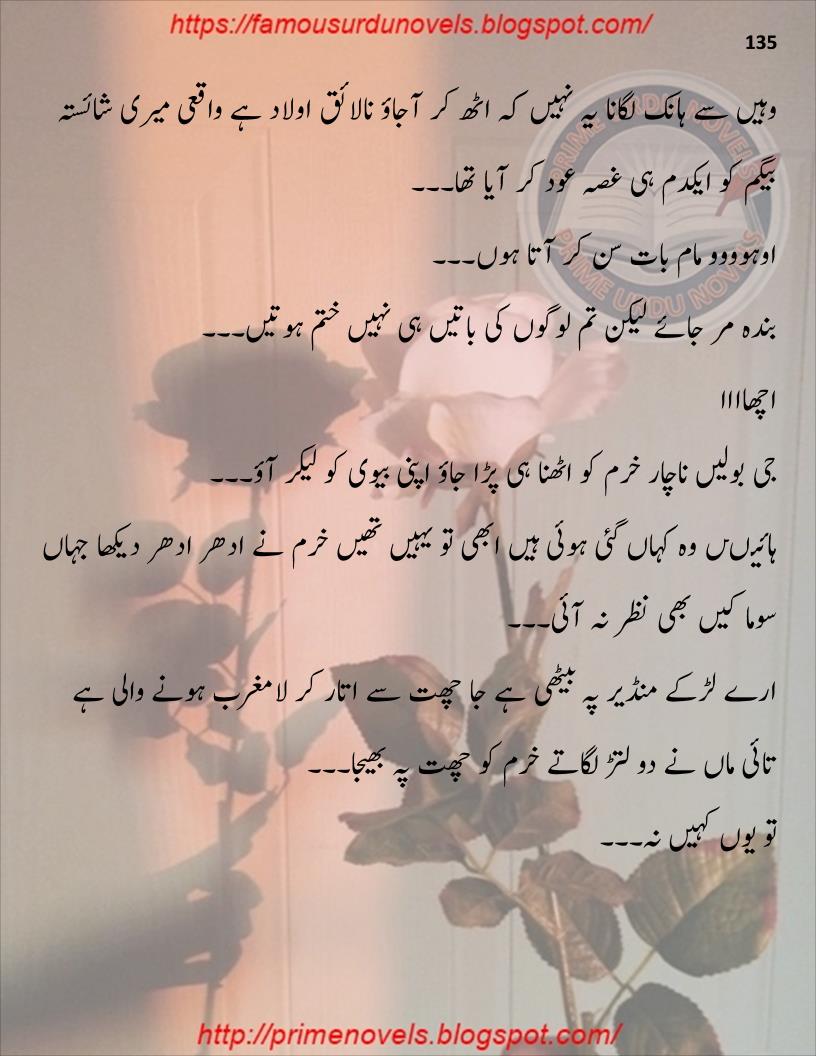 https://famousurdunovels.blogspot.com/
135
وہیں سے ہانک لگانا یہ نہیں کہ اٹھ کر آجاؤ نالائق اولاد ہے واقعی میری شائستہ
بیگم کو ایکدم ہی غصہ عود کر آیا تھا۔۔۔
اوہوووو مام بات سن کر آتا ہوں۔۔۔
بندہ مر جائے لیکن تم لوگوں کی باتیں ہی نہیں ختم ہوتیں۔۔۔
اچھااااا
جی بولیں ناچار خرم کو اٹھنا ہی پڑا جاؤ اپنی بیوی کو لیکر آؤ۔۔۔
ہائیںں وہ کہاں گئی ہوئی ہیں ابھی تو یہیں تھیں خرم نے ادھر ادھر دیکھا جہاں
سوما کیں بھی نظر نہ آئی۔۔۔
ارے لڑکے منڈیر پہ بیٹھی ہے جا چھت سے اتار کر لا مغرب ہونے والی ہے
تائی ماں نے دو لتڑ لگاتے خرم کو چھت پہ بھیجا۔۔۔
تو یوں کہیں نہ۔۔۔
PRIME URDU NOVELS
PRIME URDU NOVELS
http://primenovels.blogspot.com/